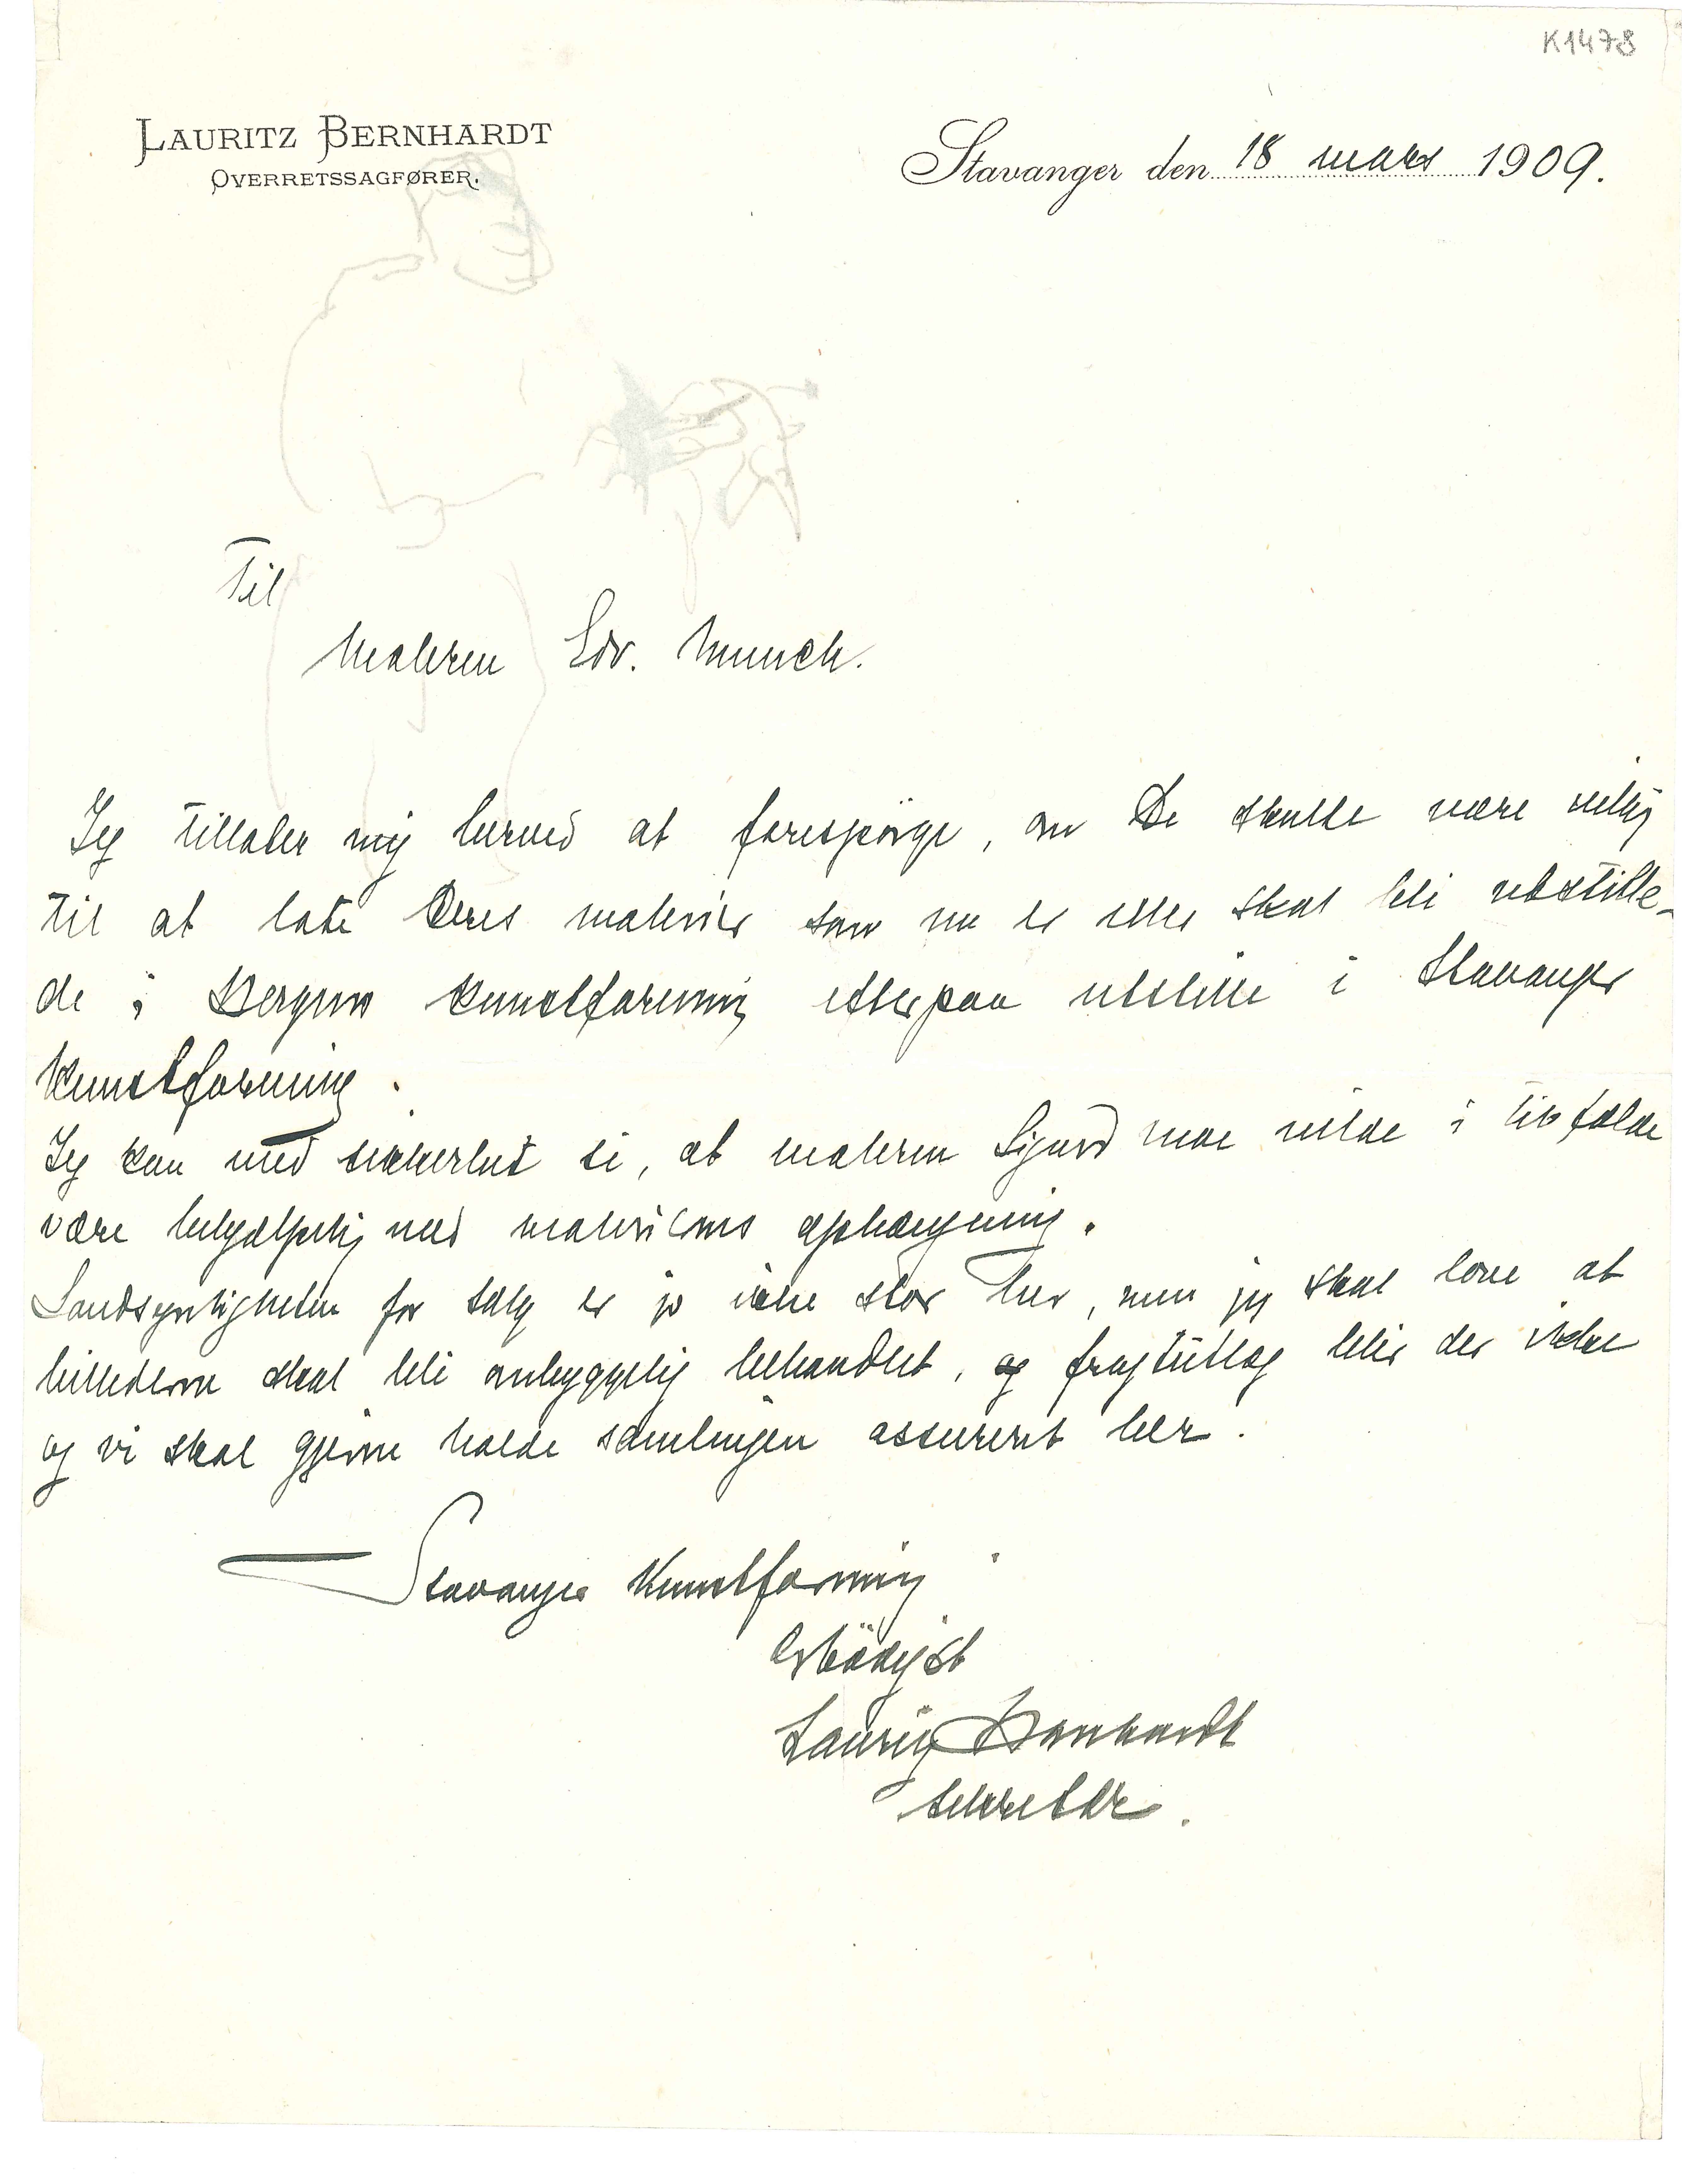 K1478
LAURITZ BERNHARDT
OVERRETSSAGFØRER.
Stavanger den 18 mars 1909.
Til
Maleren Edv. Munch.
Jeg tillater mig herved at forespörge, om De skulde være villig
til at late Deres malerier som nu er eller skal bli utstille-
de i Bergens Kunstforening efterpaa utstille i Stavanger
Kunstforening.
Jeg kan med sikkerhet si, at maleren Sigurd vilde i tilfælde
være behjælpelig med maleriernes ophængning.
Sandsynligheten for salg er jo ikke stor her, men jeg skal love at
billederne skal bli omhyggelig behandlet, og fragtutlæg blir der ikke
og vi skal gjerne holde samlingen assurert her.
Stavanger Kunstforening
Ærbödigst
Lauritz Bernhardt
sekretær.